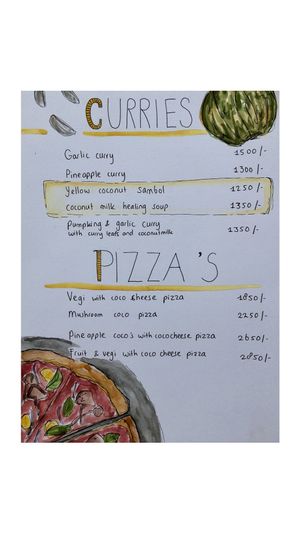 CURRIES
Garlic curry 1500/-
Pineapple curry 1300/-
Yellow coconut sambol 1250/-
coconut milk healing soup 1350/-
Pumpking & garlic curry
with curry leafs and coconutmilk 1350/-
PIZZA'S
Vegi with coco &heese pizza 1850/-
Mushroom coco pizza 2250/-
Pineapple coco's with cococheese pizza 2650/-
Fruit & vegi with coco cheese pizza 2850/-